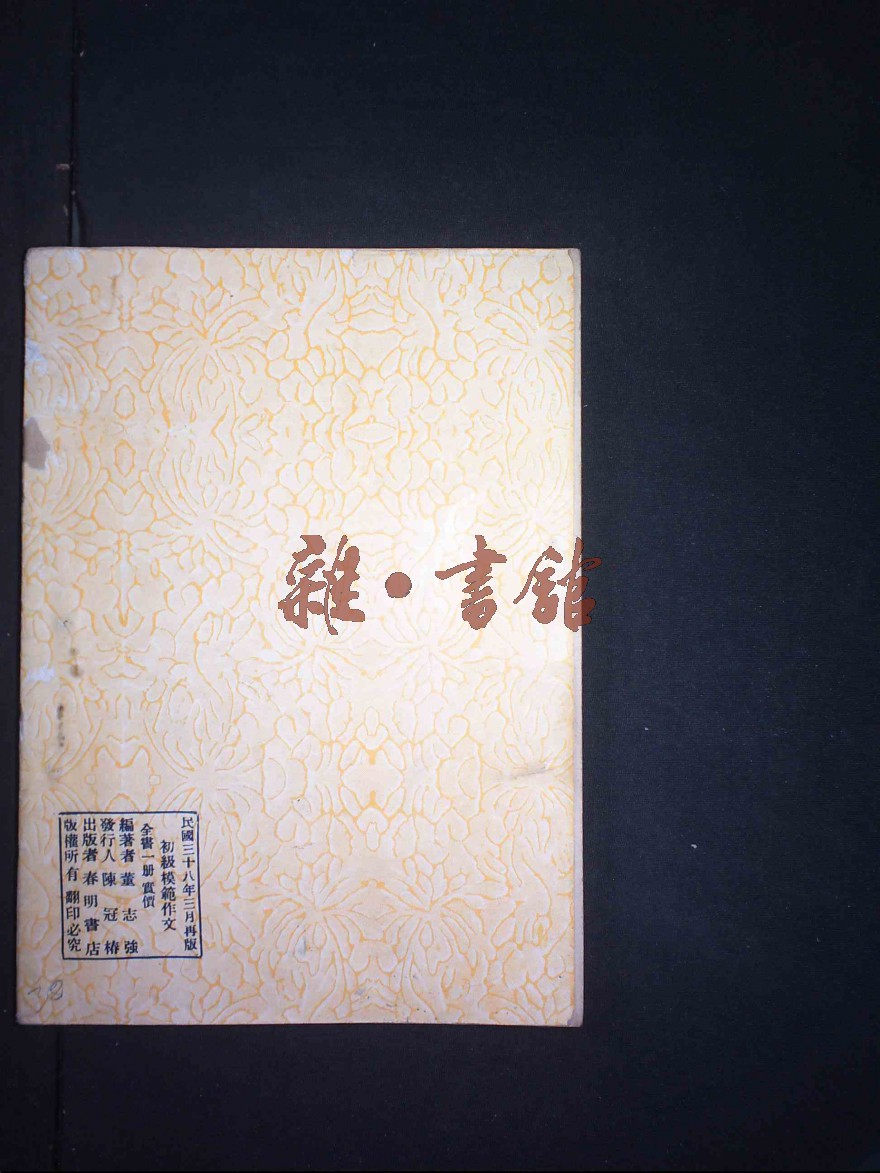 雜·書館
民國三十八年三月再版
初級模範作文
全書一册實價
編著者 董志強
發行人 陳冠椿
出版者 春明書店
版權所有 翻印必究